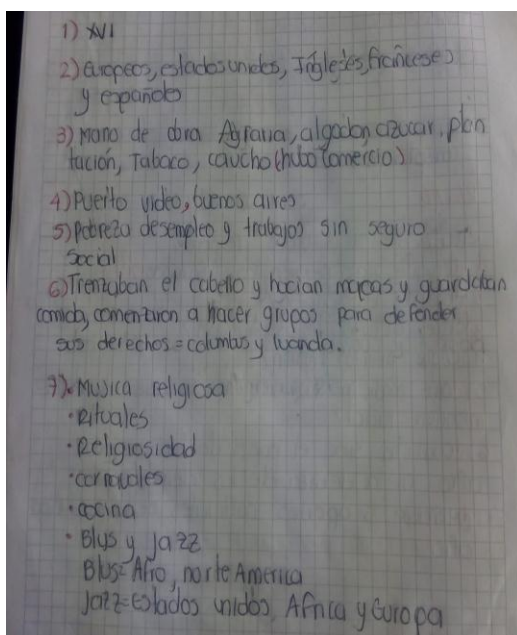 1) XVI
2) Europeos, estados unidos, Ingleses, francéses
y españoles
3) Mano de obra Agraria, algodon, azucar, plan
tación, Tabaco, caucho (hubo comercio)
4) Puerto video, buenos aires
5) Pobreza desempleo y trabajos sin seguro
social
6) Trenzaban el cabello y hacian mapas y guardaban
comida, comenzaron a hacer grupos para defender
sus derechos = columbus y luanda.
7). Musica religiosa
· Rituales
· Religiosidad
· carnavales
· cocina
· Blus y Jazz
Blus= Afro, norte America
Jazz= estados unidos, Africa y Europa